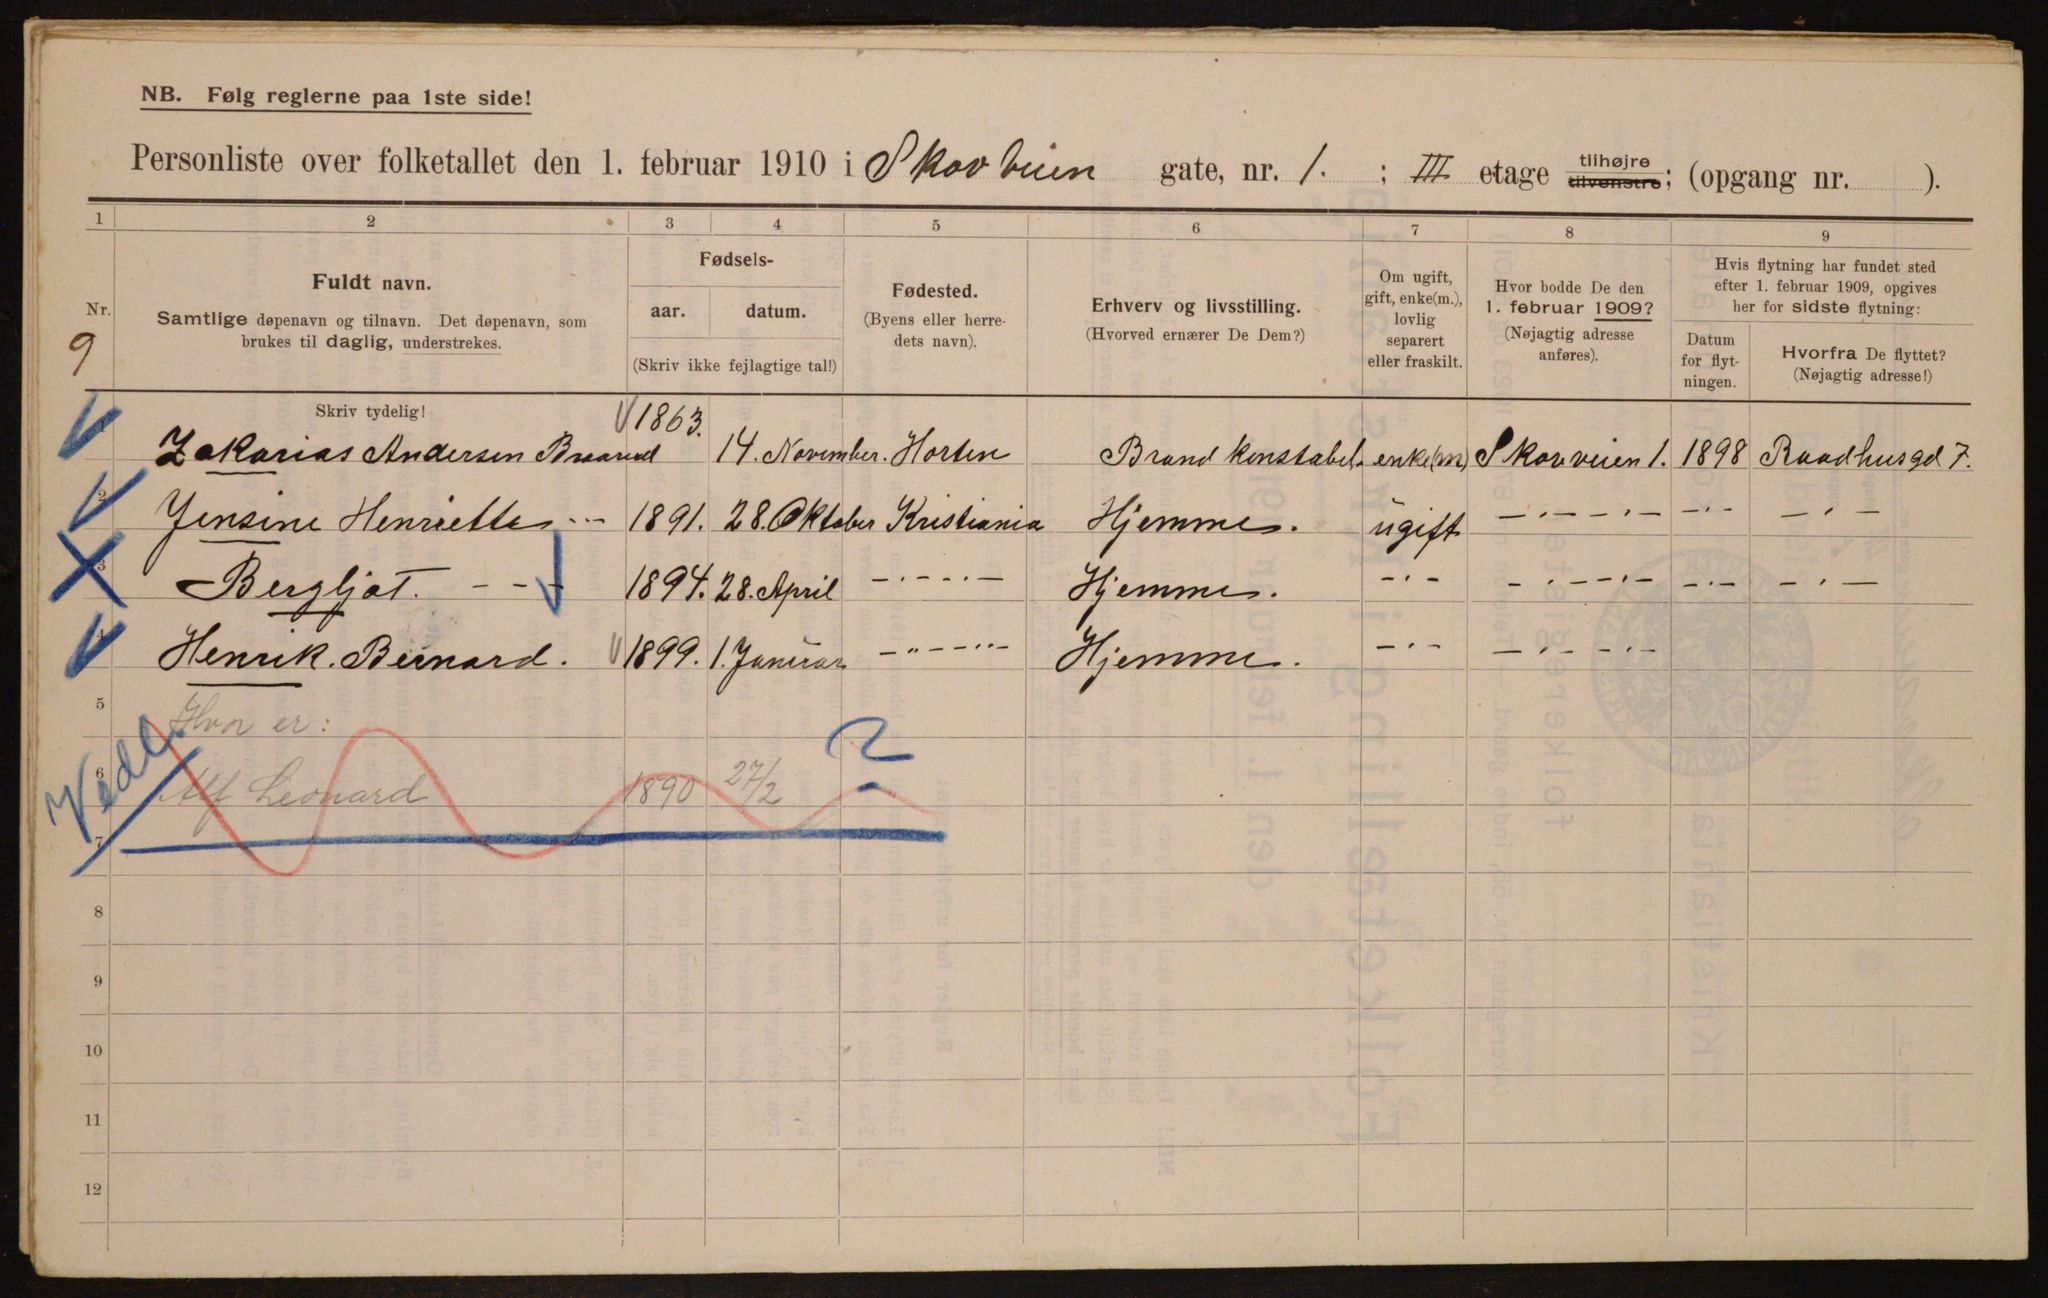 NB. Følg reglerne paa 1ste side!
Personliste over folketallet den 1. februar 1910 i Skovveien gate, nr. 1. ; III etage tilhøjre tilvenstre; (opgang nr. ).
1 2 3 4 5 6 7 8 9
Nr.
9
Fuldt navn.
Samtlige døpenavn og tilnavn. Det døpenavn, som
brukes til daglig, understrekes.
Skriv tydelig!
Fødsels-
aar. datum.
(Skriv ikke fejlagtige tal!)
Fødested.
(Byens eller herre-
dets navn).
Erhverv og livsstilling.
(Hvorved ernærer De Dem?)
Om ugift,
gift, enke(m.),
lovlig
separert
eller fraskilt.
Hvor bodde De den
1. februar 1909?
(Nøjagtig adresse
anføres).
Hvis flytning har fundet sted
efter 1. februar 1909, opgives
her for sidste flytning:
Datum
for flyt-
ningen.
Hvorfra De flyttet?
(Nøjagtig adresse!)
Zakarias Andersen Braarud 1863. 14. November. Horten Brandkonstabel. enke(m) Skovveien 1. 1898 Raadhusgd 7.
2 Jensine Henriette --- 1891. 28. Oktober Kristiania Hjemme. ugift -.-.-.- -.- -.-
3 Bergljot. --- 1894. 28. April -.-.- Hjemme. -.- -.-.- -.- -.-
4 Henrik. Bernard. 1899. 1. Januar -"-"- Hjemme. -.- -.-.-
5 Hvor er:
6 Alf Leonard 1890 27/2 ?
Vedl.
7
8
9
10
11
12